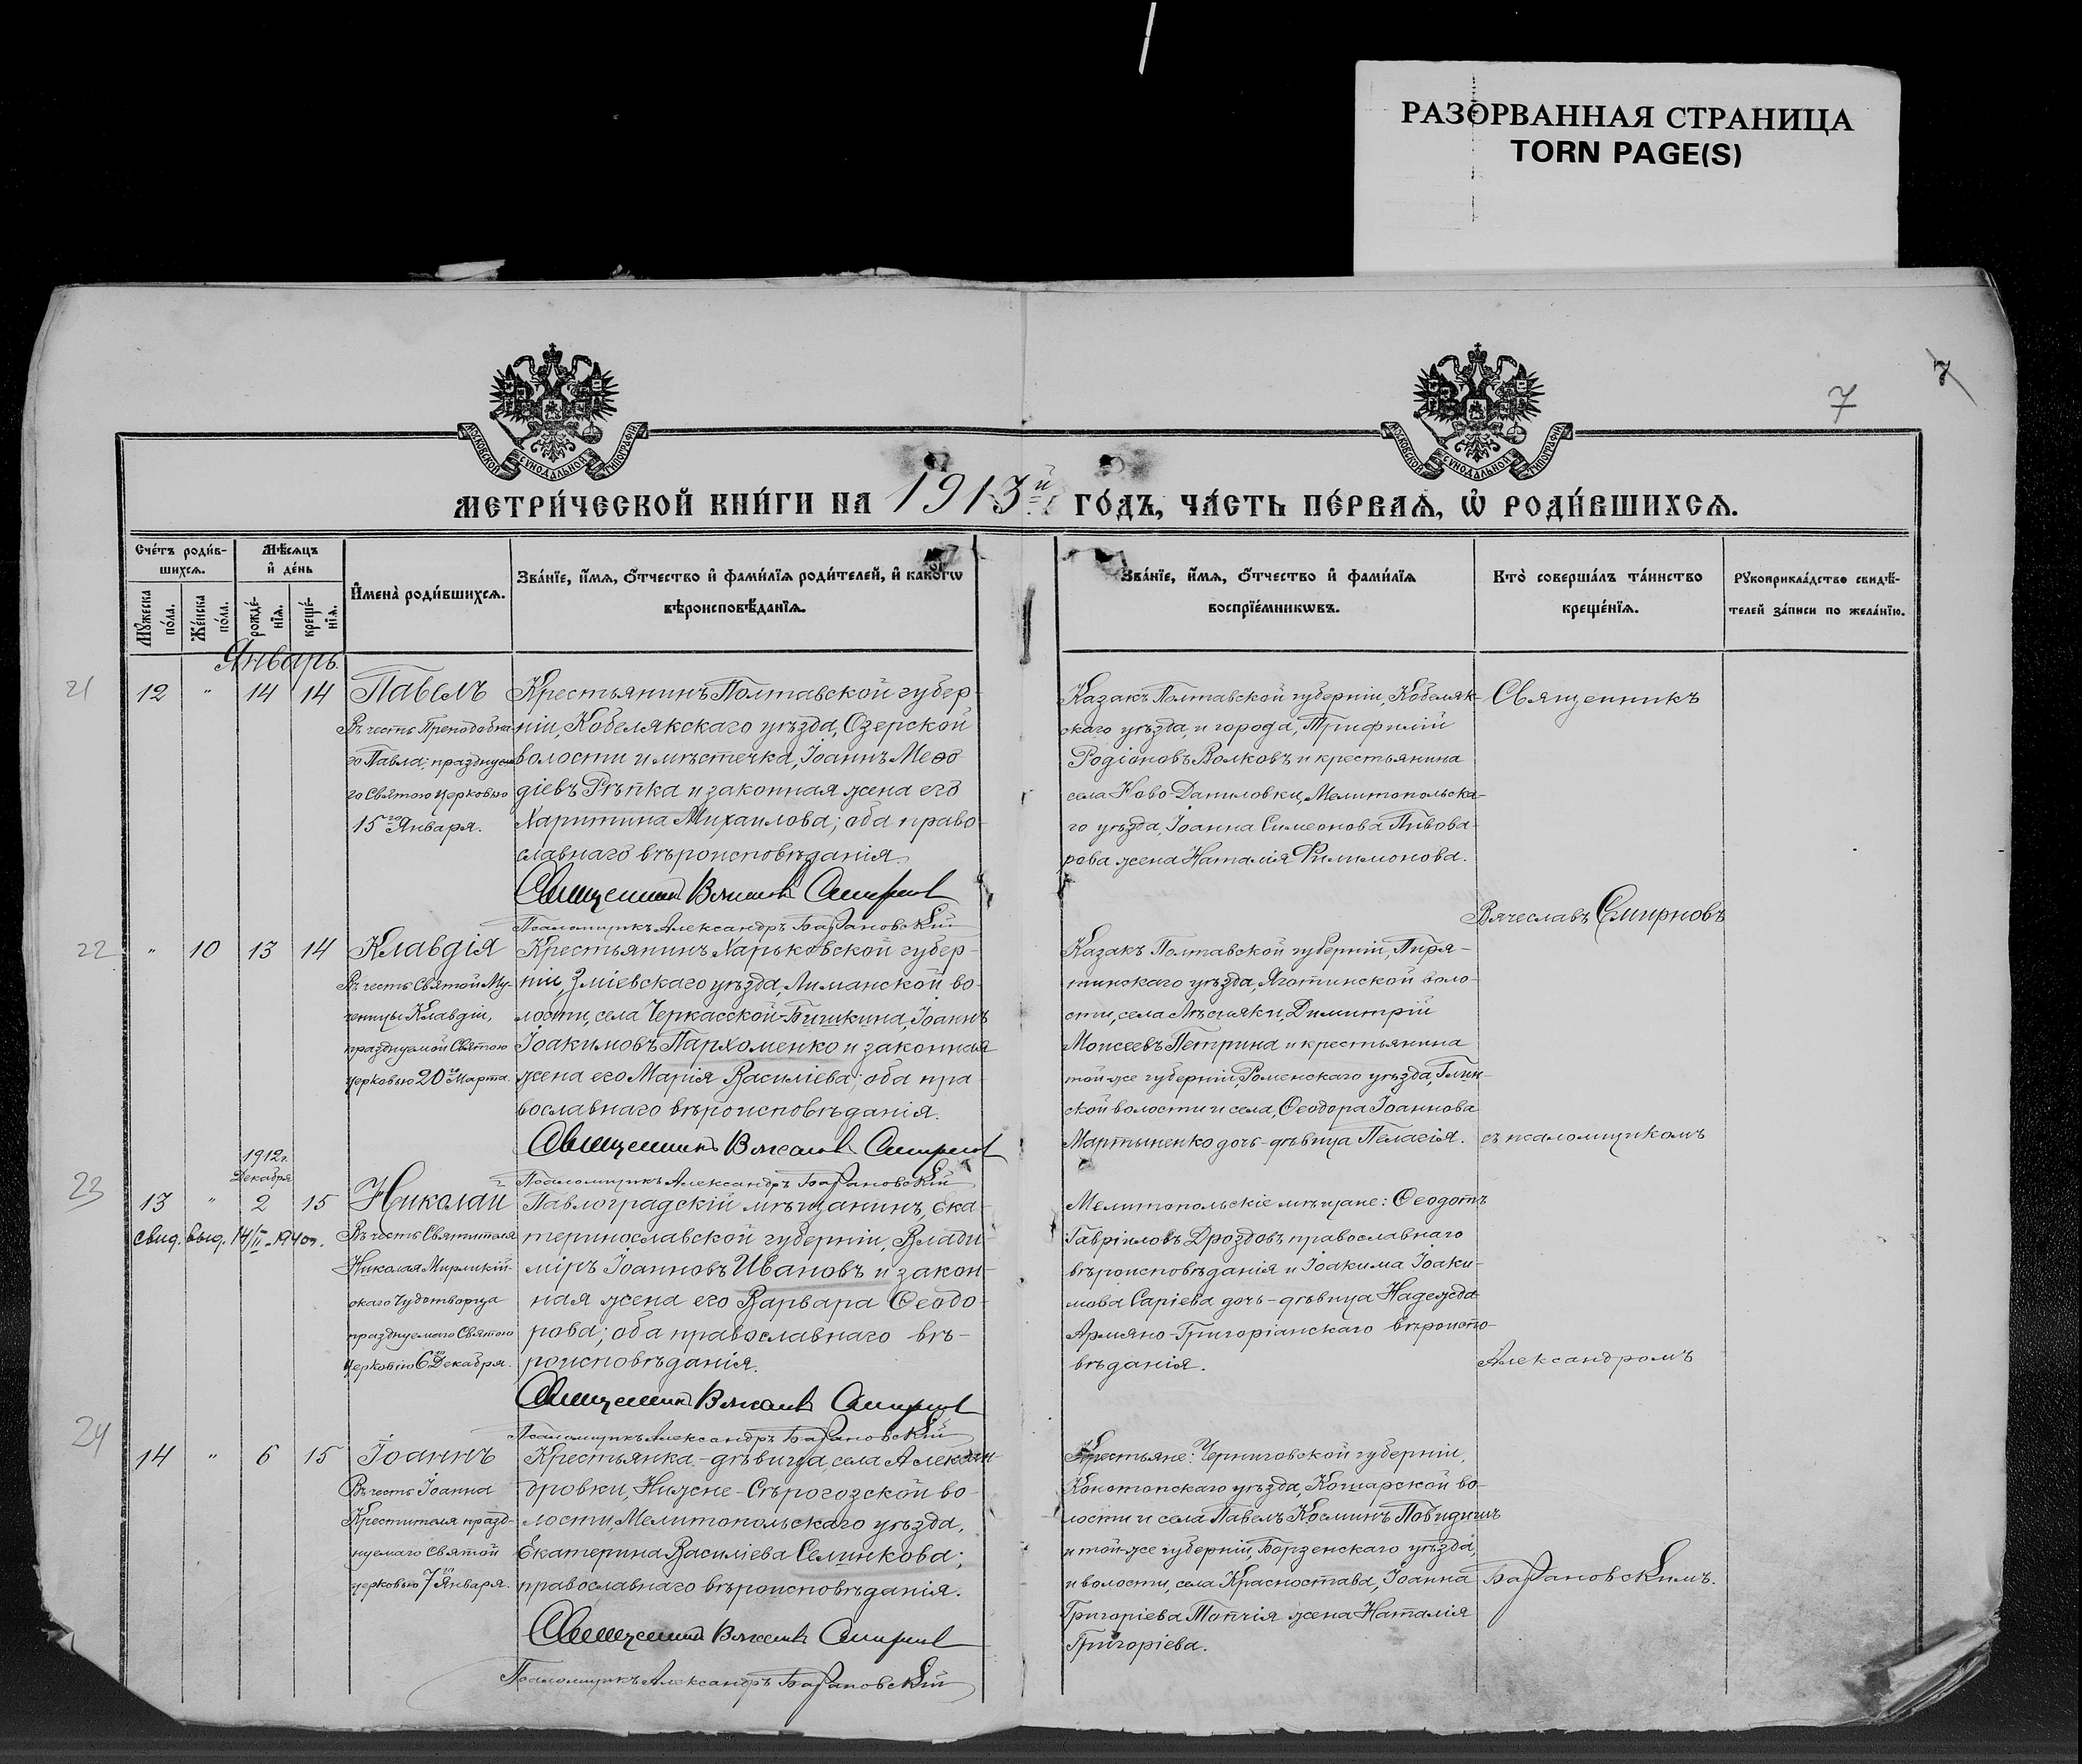 РАЗОРВАННАЯ СТРАНИЦА
TORN PAGE(S)
7
7
МОСКОВСКОЙ СУНОДАЛЬНОЙ ТИПОГРАФІИ
МОСКОВСКОЙ СУНОДАЛЬНОЙ ТИПОГРАФІИ
МЕТРИ́ЧЕСКОЙ КНИ́ГИ НА 1913й ГО́ДЪ, ЧА́СТЬ ПЕ́РВАѦ, Ѡ҆ РОДИ́ВШИХСѦ.
Сче́тъ роди́в-
шихсѧ.
Мѣ́сяцъ
и҆ де́нь
Мꙋ́жеска по́ла.
Же́нска по́ла.
рожде́-
нїѧ.
креще́-
нїѧ.
И҆мена̀ роди́вшихсѧ.
Зва́нїе, и҆́мѧ, ѻ҆́тчество и҆ фами́лїѧ роди́телей, и҆ како́гѡ
вѣроисповѣ́данїѧ.
Зва́нїе, и҆́мѧ, ѻ҆́тчество и҆ фами́лїѧ
воспрїе́мникѡвъ.
Кто̀ соверша́лъ та́инство
креще́нїѧ.
Рꙋкоприкла́дство свидѣ́-
телей за́писи по жела́нїю.
Январь.
21
12 " 14 14
Павелъ
Въ честь Преподобна-
го Павла, празднуема-
го Святою Церковью
15го Января.
Крестьянинъ Полтавской губер-
ніи, Кобелякскаго уѣзда, Озерской
волости и мѣстечка, Іоаннъ Меѳо
діевъ Рѣпка и законная жена его
Харитина Михаилова; оба право-
славнаго вѣроисповѣданія.
Священникъ Вячеславъ Смирновъ
Псаломщикъ Александръ Барановскій
Казакъ Полтавской губерніи, Кобеляк-
скаго уѣзда, и города, Трифилій
Родіоновъ Волковъ и крестьянина
села Ново-Даниловки, Мелитопольска-
го уѣзда, Іоанна Симеонова Пивова-
рова жена Наталія Филимонова.
Священникъ
Вячеславъ Смирновъ
22
" 10 13 14
Клавдія
Въ честь Святой Му-
ченицы Клавдіи,
празднуемой Святою
Церковью 20го Марта.
Крестьянинъ Харьковской губер-
ніи, Зміевскаго уѣзда, Лиманской во-
лости, села Черкасской-Бишкина, Іоаннъ
Іоакимовъ Пархоменко и законная
жена его Марія Василіева; оба пра-
вославнаго вѣроисповѣданія.
Священникъ Вячеславъ Смирновъ
Псаломщикъ Александръ Барановскій
Казакъ Полтавской губерніи, Пиря-
тинскаго уѣзда, Яготинской воло-
сти, села Лѣсняки, Димитрій
Моисеевъ Петрина и крестьянина
той-же губерніи, Роменскаго уѣзда, Глин-
ской волости и села, Ѳеодора Іоаннова
Мартыненко дочь-дѣвица Пелагія.
съ псаломщикомъ
23
1912г.
Декабря
13 " 2 15
свид. выд. 14/II-1940г.
Николай
Въ честь Святителя
Николая Мирликій-
скаго Чудотворца
празднуемаго Святою
Церковію 6го Декабря.
Павлоградскій мѣщанинъ, Ека-
теринославской губерніи, Влади-
міръ Іоанновъ Ивановъ и закон-
ная жена его Варвара Ѳеодо-
рова; оба православнаго вѣ-
роисповѣданія.
Священникъ Вячеславъ Смирновъ
Псаломщикъ Александръ Барановскій
Мелитопольскіе мѣщане: Ѳеодотъ
Гавріиловъ Дроздовъ православнаго
вѣроисповѣданія и Іоакима Іоаки-
мова Саріева дочь-дѣвица Надежда
Армяно-Григоріанскаго вѣроиспо-
вѣданія.
Александромъ
24
14 " 6 15
Іоаннъ
Въ честь Іоанна
Крестителя празд-
нуемаго Святой
Церковью 7го Января.
Крестьянка-дѣвица, села Алексан-
дровки, Нижне-Сѣрогозской во-
лости, Мелитопольскаго уѣзда,
Екатерина Василіева Селинкова;
православнаго вѣроисповѣданія.
Священникъ Вячеславъ Смирновъ
Псаломщикъ Александръ Барановскій
Крестьяне: Черниговской губерніи,
Конотопскаго уѣзда, Кошарской во-
лости и села Павелъ Косминъ
и той-же губерніи, Борзенскаго уѣзда,
и волости, села Красностава, Іоанна
Григоріева Топчія жена Наталія
Григоріева.
Барановскимъ.